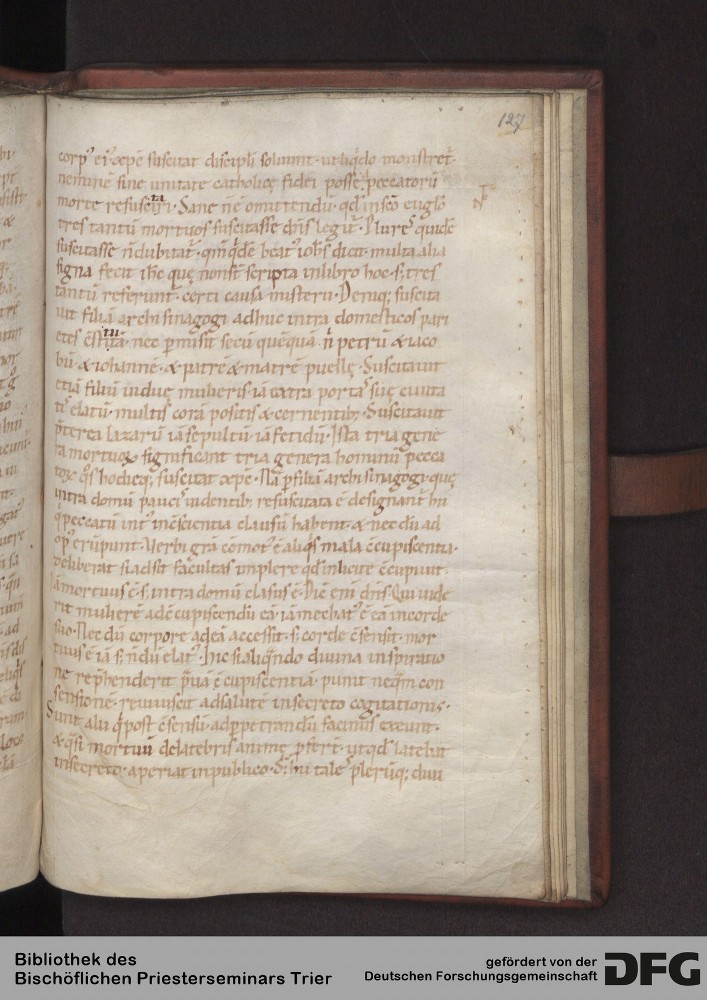 127
corp᷒ ei᷒ xp̄e suscitat discipli soluunt · ut aliq̄do monstret̄ ·
neminē sine unitate catholicę fidei posse peccatorū
morte resuscitari · Sane n̄ ē omittendū · qd̄ in scō euglō
tres tantū mortuos suscitasse dn̄s legit̄ · Plures quidē
suscitasse n̄ dubitat̄ · qm̄ q̄dē beat᷒ iohs̄ dicit · multa alia
signa fecit ihc̄ quę non st̄ scripta in libro hoc · s; tres
tantū referunt̄ · certi causa misterii · Deniq; suscita
uit filiā archisinagogi adhuc intra domesticos pari
etes c̄stitutā · nec p̄misit secū quēquā · n̄ petrū & iaco
bū · & iohannē · & patrē & matrē puellę · Suscitauit
etiā filiū viduę mulieris · iā extra portas suę ciuita
tis elatū · multis corā positis & cernentib; · Suscitauit
p̄terea lazarū iā sepultū · iā fetidū · Ista tria gene
ra mortuoꝝ significant tria genera hominū pecca
toꝝ q̄s hodieq; suscitat xp̄c · Nā p̄ filiā archisinagogi · quę
intra domū paucis uidentib; resuscitata ē designant̄ hi
q̄ peccatū int᷒ in c̄scientia clausū habent · & nec dū ad
op᷒ erūpunt · Uerbi grā c̄mot᷒ ē aliq̄s mala c̄cupiscentia ·
deliberat si adsit facultas implere qd̄ inlicite c̄cupiuit ·
iā mortuus ē · s; intra domū clasus ē · Dic̄ enī dn̄s · Qui uide
rit mulierē ad c̄cupiscendū eā · iā mechat᷒ ē eā in corde
suo · Nec dū corpore ad eā accessit · s; corde c̄sensit · mor
tuus ē iā s; n̄dū elat᷒ · hic si aliq̄ndo diuina inspiratio
ne rep̄henderit p̄uā c̄cupiscentiā · punit neq̄m con
sensionē · reuiuiscit ad salutē in secreto cogitationis ·
Sunt alii q̄ post c̄sensū · ad p̄petrandū facinus exeunt ·
& q̄si mortuū de latebris animę p̄fer̄t · ut qd̄ latebat
in secreto · aperiat in publico ·
Bibliothek des
Bischöflichen Priesterseminars Trier
gefördert von der
Deutschen Forschungsgemeinschaft
DFG